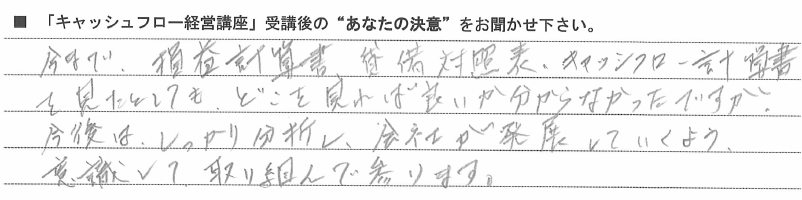 ■ 「キャッシュフロー経営講座」受講後の“あなたの決意”をお聞かせ下さい。
今まで、損益計算書、貸借対照表、キャッシュフロー計算書
を見たとしても、どこを見れば良いか分からなかったですが、
今後は、しっかり分析し、会社が発展していくよう、
意識して取り組んで参ります。